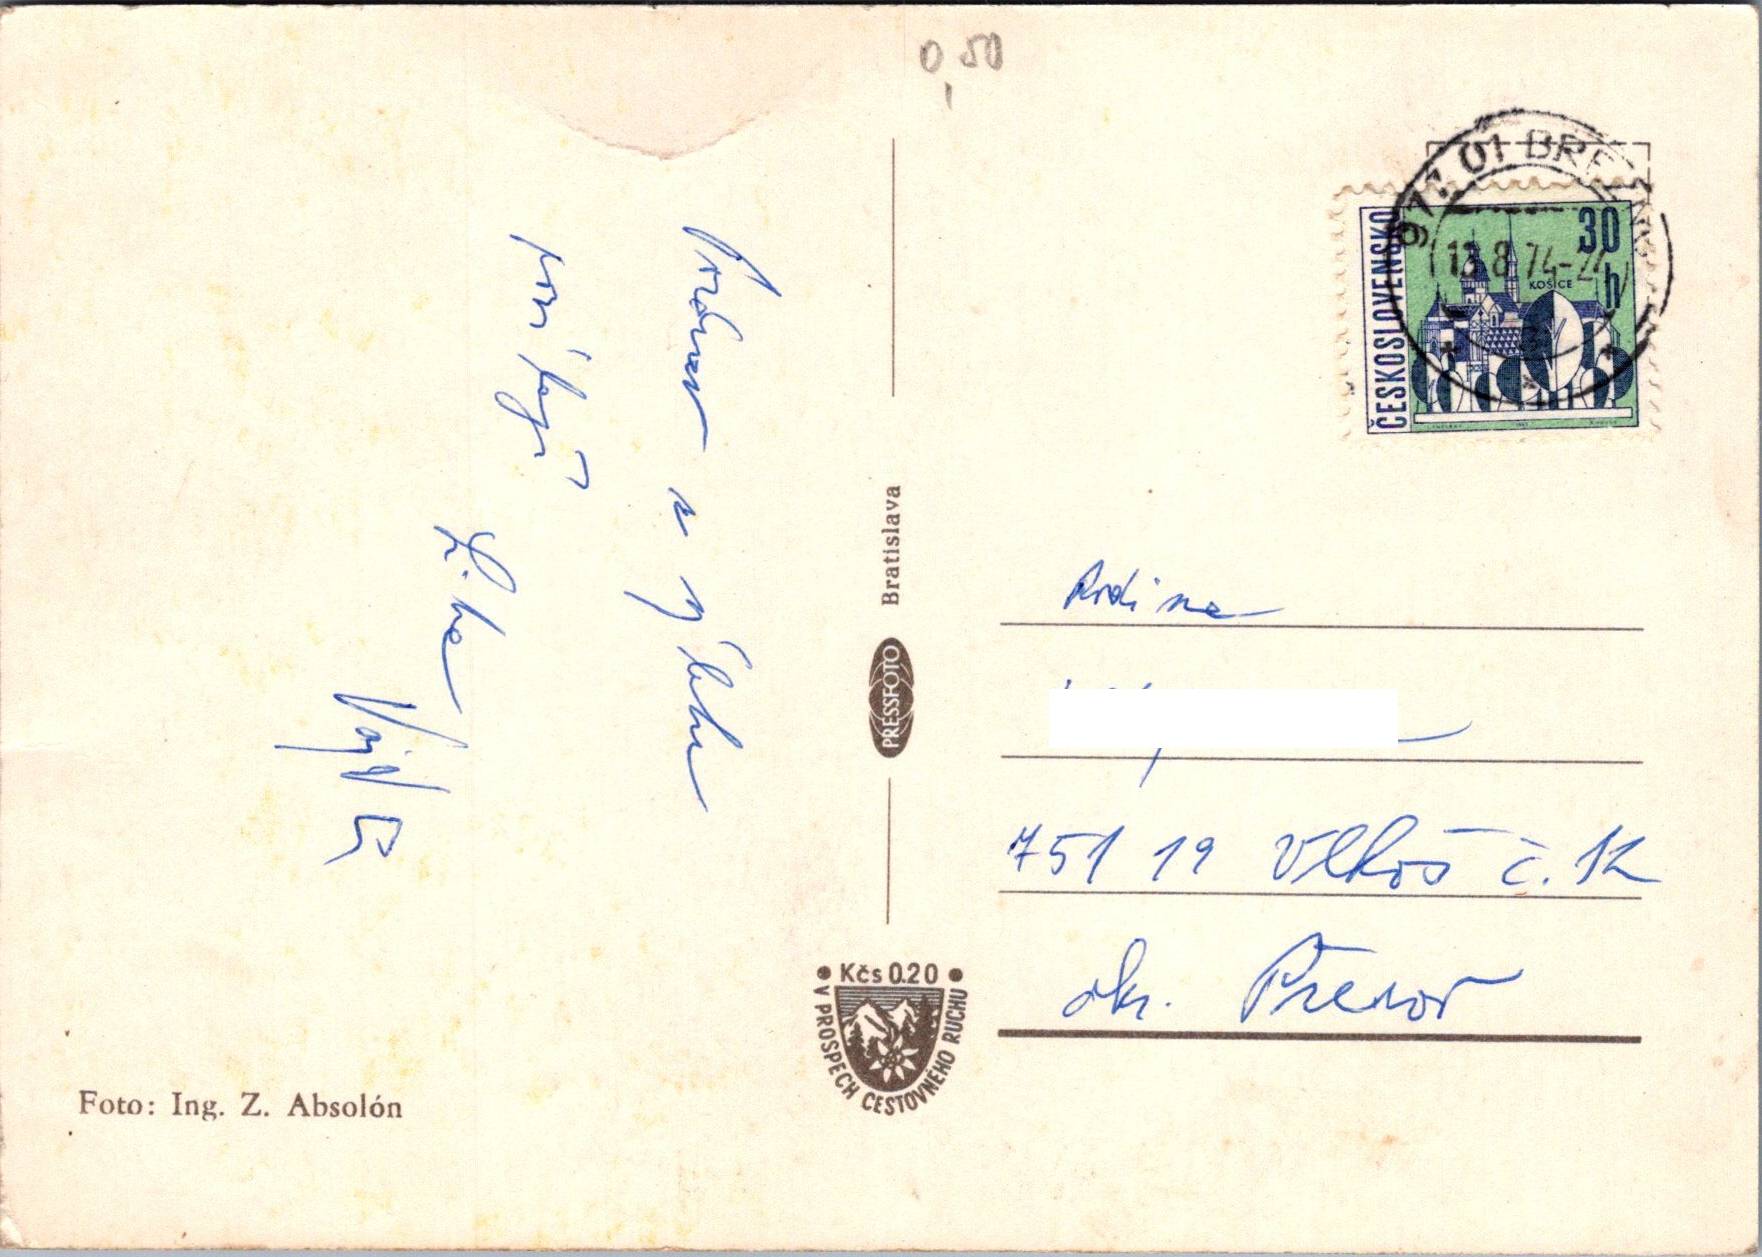 0,50
Pozdrav z výletu
posílají
Vojtů
Bratislava
PRESSFOTO
Kčs 0.20
V PROSPECH CESTOVNÉHO RUCHU
Foto: Ing. Z. Absolón
977 01 BREZNO
13.8.74-24
ČESKOSLOVENSKO
30
h
KOŠICE
Rodina
751 19 Vlkoš č. 12
okr. Přerov